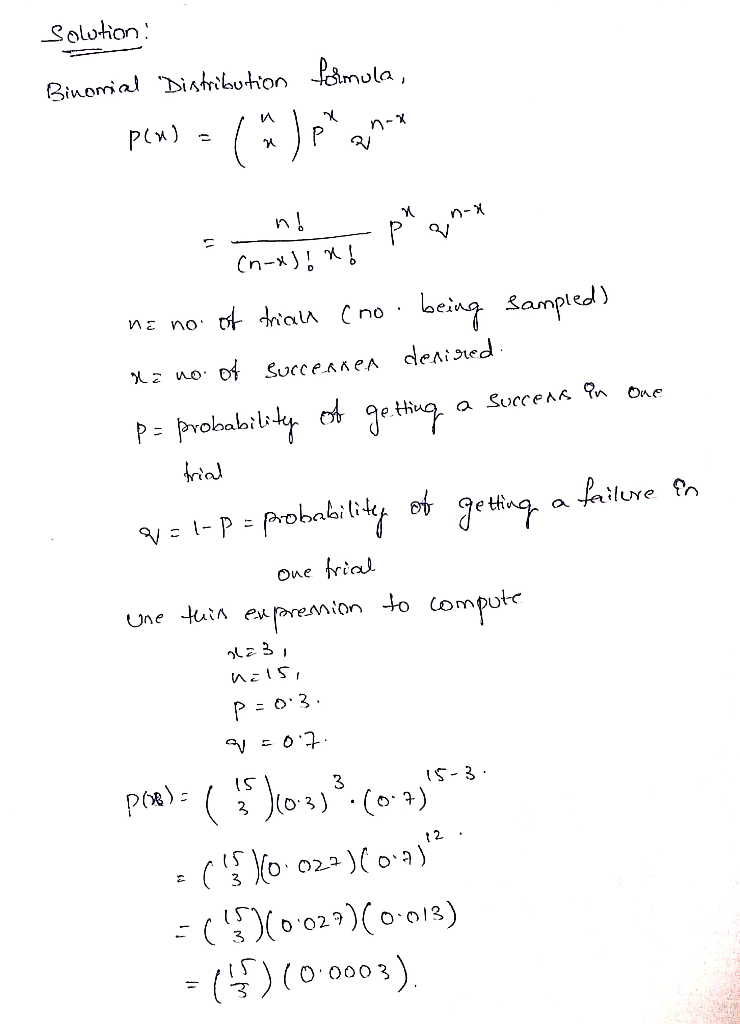 Solution:
Binomial Distribution formula,
P(x) = (n x) p^x q^n-x
= n! / (n-x)! x! p^x q^n-x
n = no. of trials (no. being sampled)
x = no. of successes desired.
P = Probability of getting a success in one
trial
q = 1-P = probability of getting a failure in
one trial
Use this expression to compute
x = 3,
n = 15,
P = 0.3.
q = 0.7.
P(3) = (15 3)(0.3)^3 . (0.7)^15-3.
= (15 3)(0.027)(0.7)^12.
= (15 3)(0.027)(0.013)
= (15 3)(0.0003).